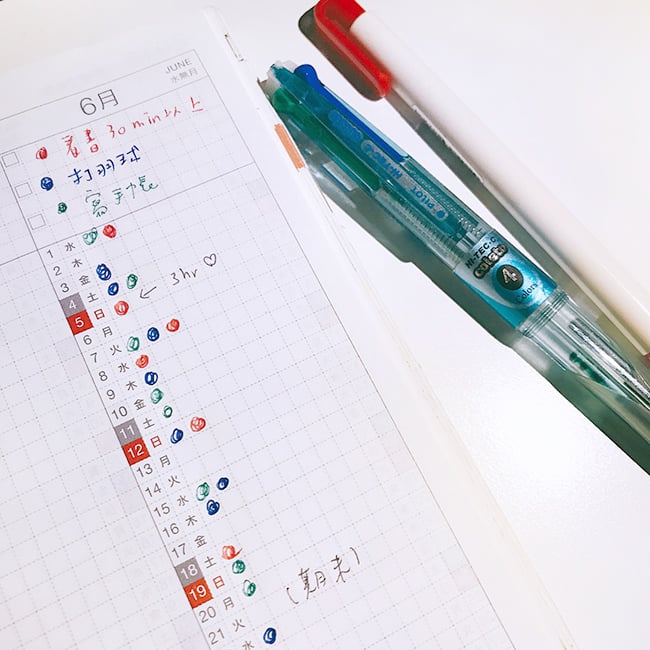 JUNE
水無月
6月
看書30min以上
打羽球
寫手帳
1 水
2 木
3 金
4 土
5 日
3hr ♡
6 月
7 火
8 水
9 木
10 金
11 土
12 日
13 月
14 火
15 水
16 木
17 金
18 土
19 日
(期末)
20 月
21 火
水
PILOT
HI-TEC-C
coleto
4
Colors